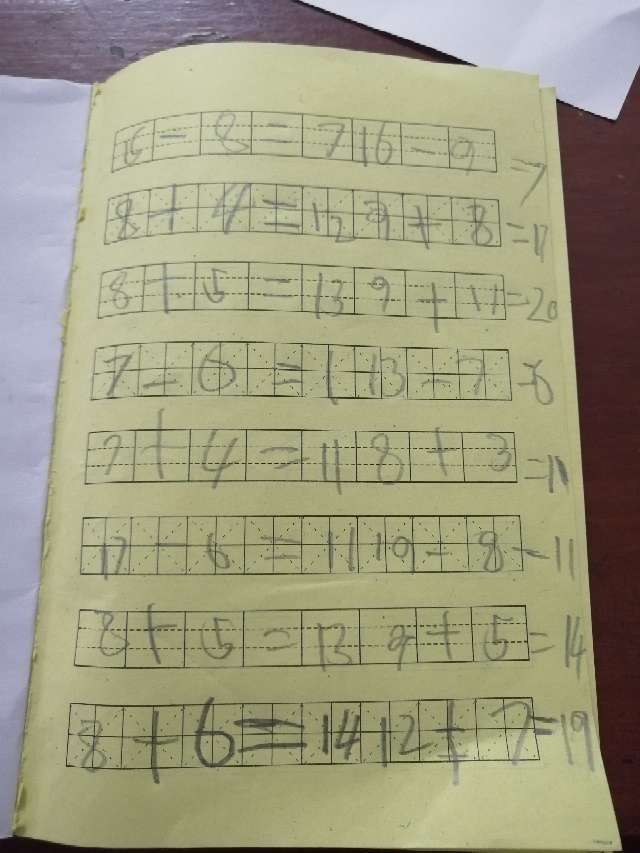 15-8=7 16-9=7
8+4=12 9+8=17
8+5=13 9+11=20
7-6=1 13-7=6
7+4=11 8+3=11
17-6=11 19-8=11
8+5=13 9+5=14
8+6=14 12+7=19